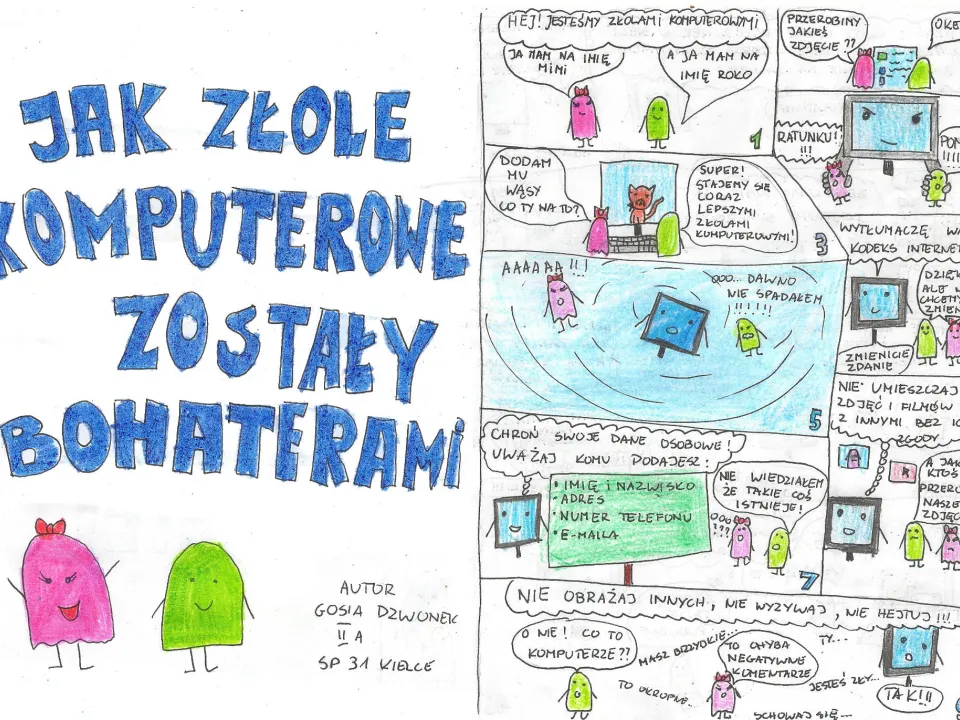 JAK ZŁOLE
KOMPUTEROWE
ZOSTAŁY
BOHATERAMI
AUTOR
GOSIA DZWONEK
II A
SP 31 KIELCE
HEJ! JESTEŚMY ZŁOLAMI KOMPUTEROWYMI
JA MAM NA IMIĘ
MIMI
A JA MAM NA
IMIĘ ROKO
1
PRZEROBIMY
JAKIEŚ
ZDJĘCIE??
OKE
RATUNKU!
!!!
DODAM
MU
WĄSY
CO TY NA TO?
SUPER!
STAJEMY SIĘ
CORAZ
LEPSZYMI
ZŁOLAMI
KOMPUTEROWYMI!
3
AAAAAA!!!
OOO... DAWNO
NIE SPADAŁEM
!!!!!!
5
WYTŁUMACZĘ WA
KODEKS INTERNET
DZIĘK
ALE N
CHCEMY
ZMIEN
ZMIENICIE
ZDANIE
CHROŃ SWOJE DANE OSOBOWE!
UWAŻAJ KOMU PODAJESZ:
• IMIĘ i NAZWISKO
• ADRES
• NUMER TELEFONU
• E-MAILA
OOO
???
NIE WIEDZIAŁEM
ŻE TAKIE COŚ
ISTNIEJE!
7
NIE UMIESZCZAJ
ZDJĘĆ I FILMÓW
Z INNYMI BEZ IC
ZGODY
A JAK
KTOŚ
PRZERO
NASZE
ZDJĘC
NIE OBRAŻAJ INNYCH, NIE WYZYWAJ, NIE HEJTUJ!!!
O NIE! CO TO
KOMPUTERZE??
MASZ BRZYDKIE...
TO OKROPNE...
TO CHYBA
NEGATYWNE
KOMENTARZE
TY...
JESTEŚ ZŁY...
SCHOWAJ SIĘ...
TAK!!!